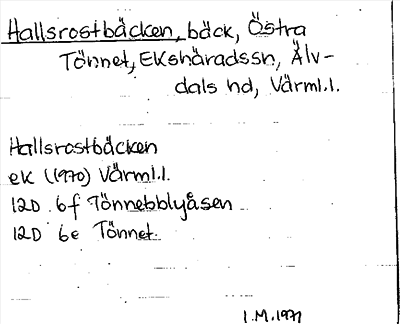 Hallsrostbäcken, bäck, Östra
Tönnet, Ekshäradssn, Älv-
dals hd, Värml.l.
Hallsrostbäcken
ek (1970) Värml.l.
12D 6f Tönnebblyåsen
12D 6e Tönnet.
I.M. 1971